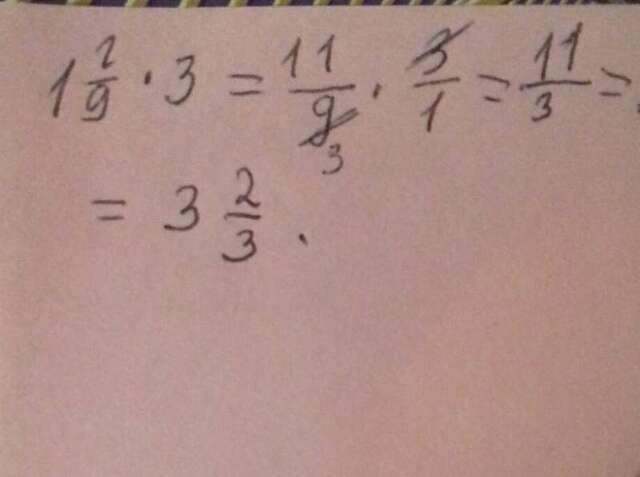 1 2/9 · 3 = 11/9 · 3/1 = 11/3 =
= 3 2/3.